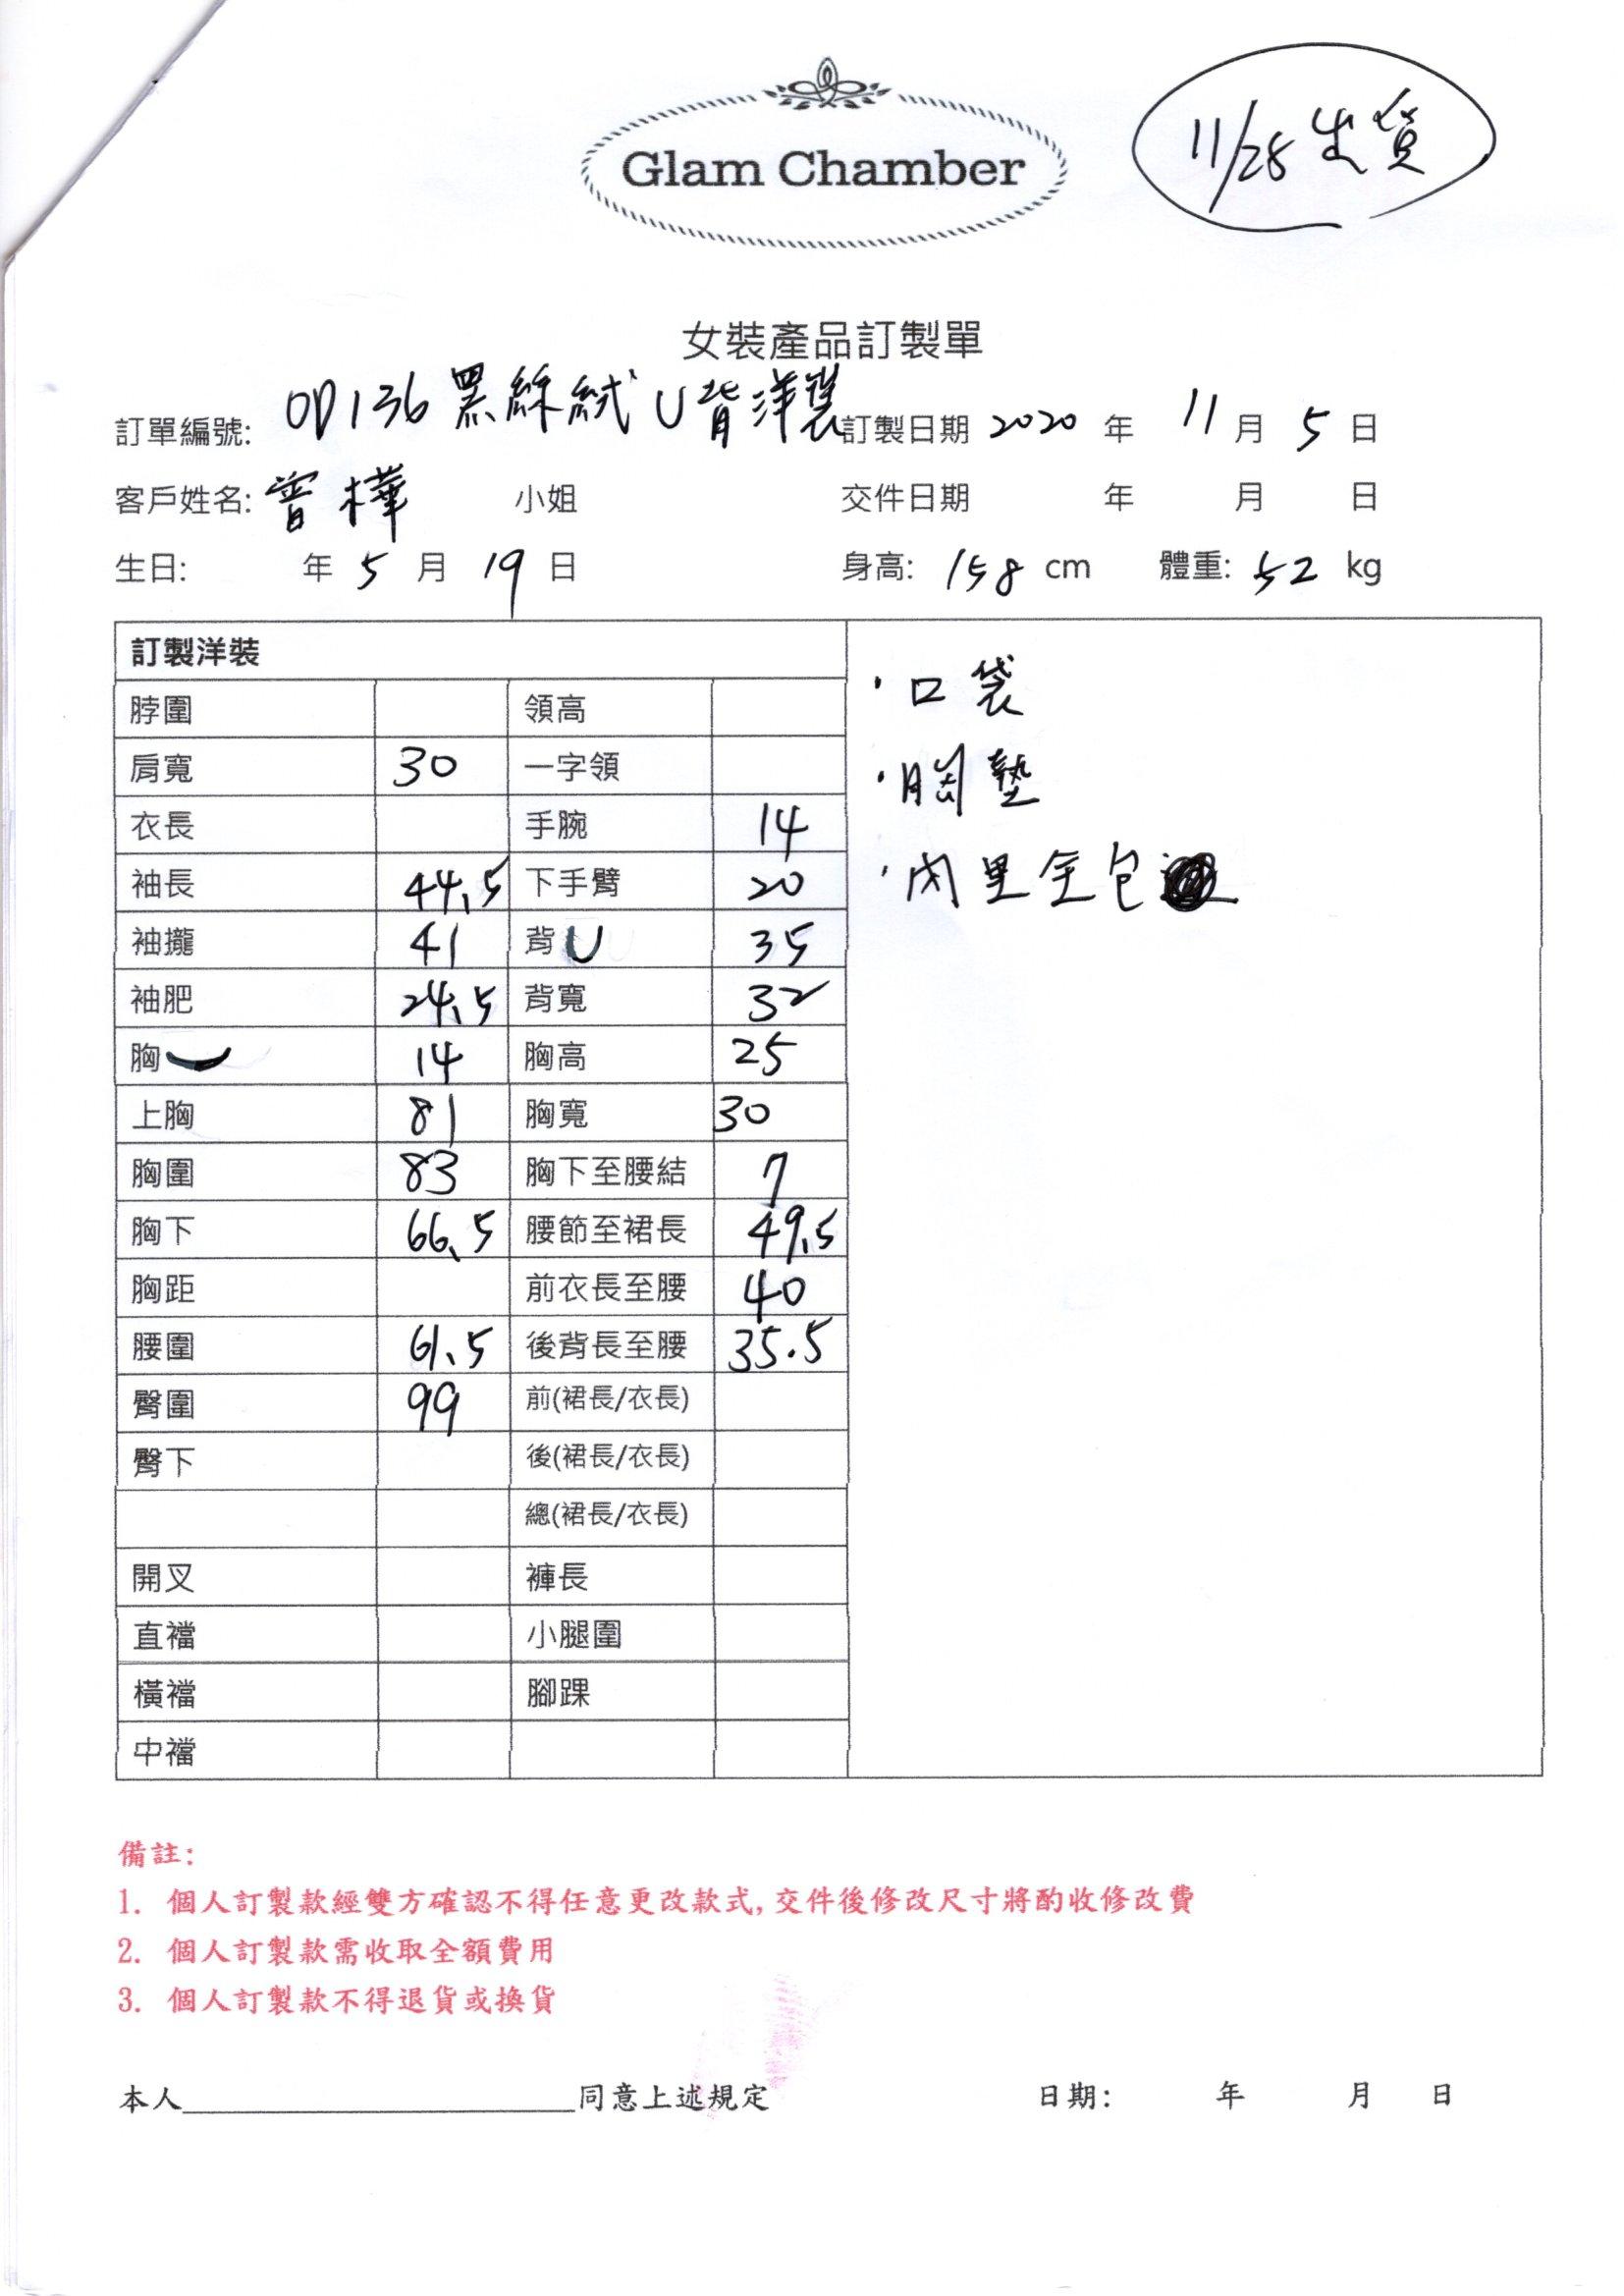 Glam Chamber
11/28 出貨
女裝產品訂製單
訂單編號: OD136 黑絲絨 U背洋裝 訂製日期 2020 年 11 月 5 日
客戶姓名: 曾樺 小姐 交件日期 年 月 日
生日: 年 5 月 19 日 身高: 158 cm 體重: 52 kg
訂製洋裝
脖圍 領高
肩寬 30 一字領
衣長 手腕 14
袖長 44.5 下手臂 20
袖攏 41 背U 35
袖肥 24.5 背寬 32
胸 14 胸高 25
上胸 81 胸寬 30
胸圍 83 胸下至腰結 7
胸下 66.5 腰節至裙長 49.5
胸距 前衣長至腰 40
腰圍 61.5 後背長至腰 35.5
臀圍 99 前(裙長/衣長)
臀下 後(裙長/衣長)
總(裙長/衣長)
開叉 褲長
直襠 小腿圍
橫襠 腳踝
中襠
·口袋
·胸墊
·內里全包
備註:
1. 個人訂製款經雙方確認不得任意更改款式,交件後修改尺寸將酌收修改費
2. 個人訂製款需收取全額費用
3. 個人訂製款不得退貨或換貨
本人____同意上述規定 日期: 年 月 日